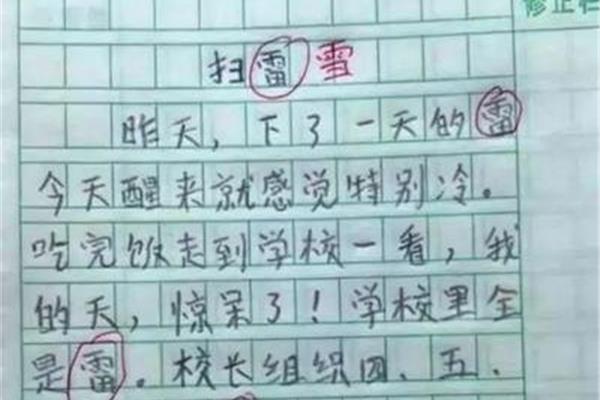 修正栏
扫雷 雪
昨天，下了一天的雷
今天醒来就感觉特别冷。
吃完饭走到学校一看，我
的天，惊呆了！学校里全
是雷。校长组织四、五、